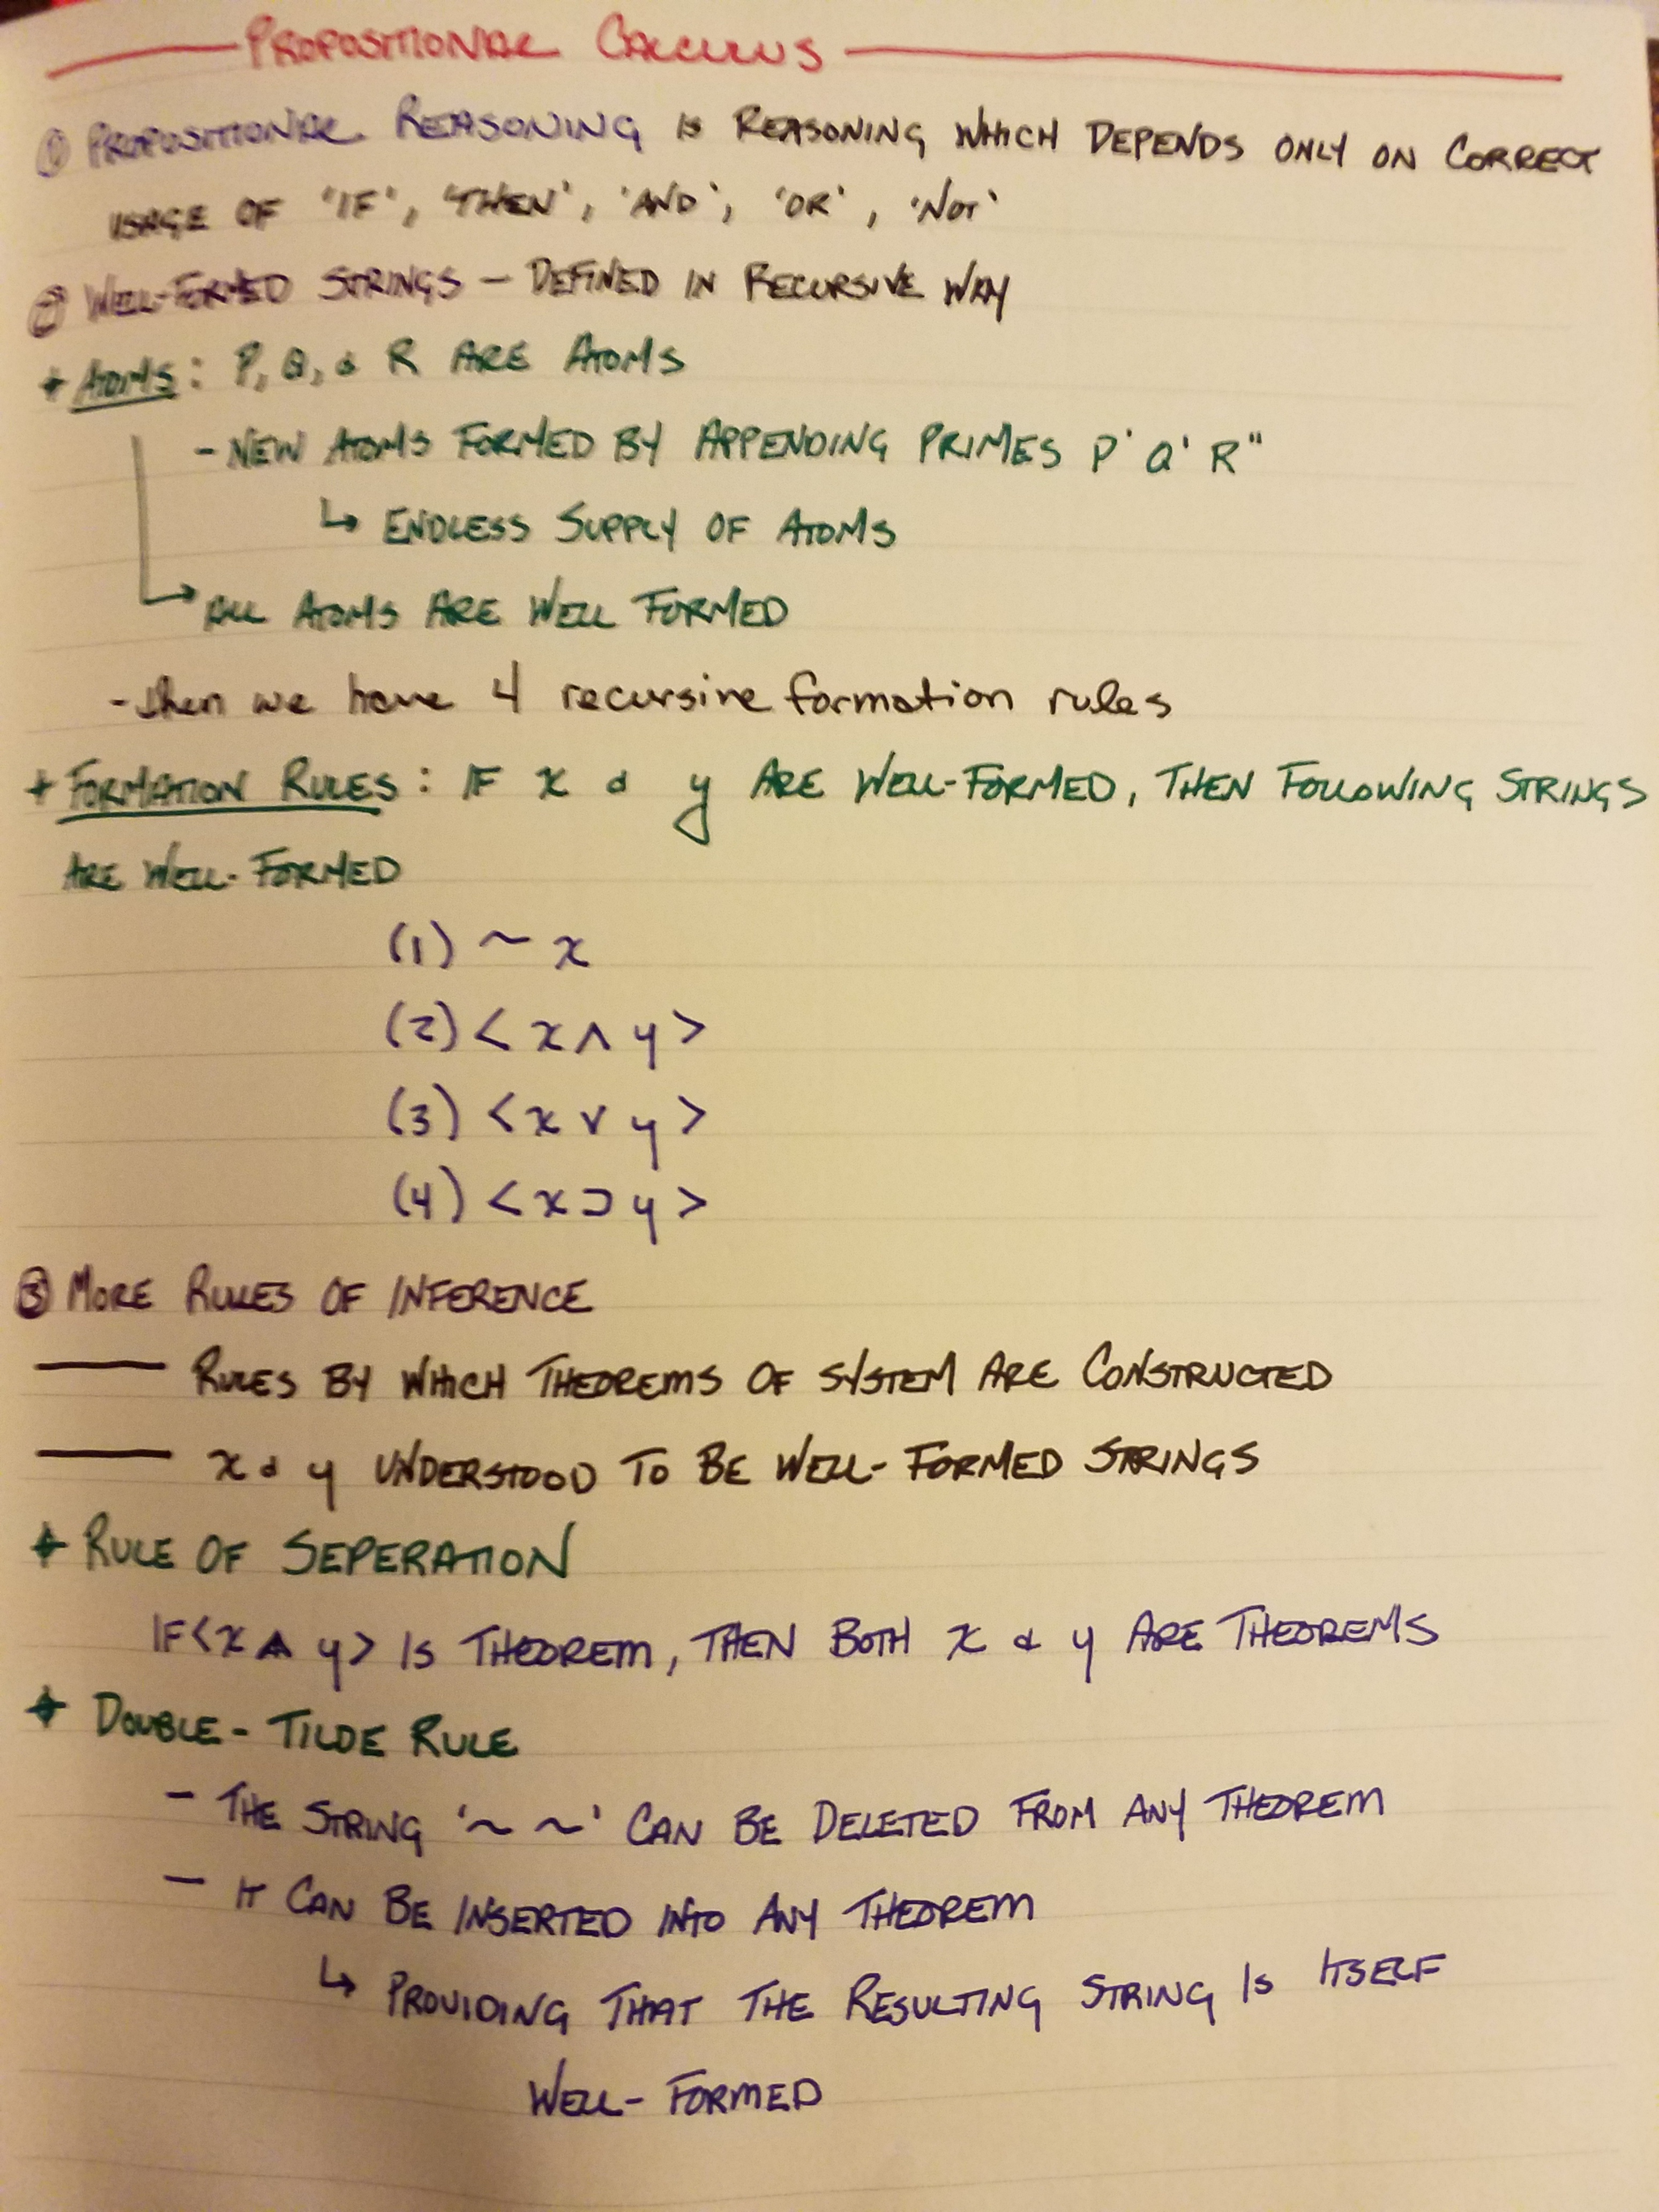 PROPOSITIONAL CALCULUS
① PROPOSITIONAL REASONING IS REASONING WHICH DEPENDS ONLY ON CORRECT
USAGE OF 'IF', 'THEN', 'AND', 'OR', 'NOT'
② WELL-FORMED STRINGS - DEFINED IN RECURSIVE WAY
+ ATOMS: P, Q, & R ARE ATOMS
- NEW ATOMS FORMED BY APPENDING PRIMES P' Q' R"
↳ ENDLESS SUPPLY OF ATOMS
↳ ALL ATOMS ARE WELL FORMED
- then we have 4 recursive formation rules
+ FORMATION RULES: IF x & y ARE WELL-FORMED, THEN FOLLOWING STRINGS
ARE WELL-FORMED
(1) ~ x
(2) < x ∧ y >
(3) < x ∨ y >
(4) < x ⊃ y >
③ MORE RULES OF INFERENCE
— RULES BY WHICH THEOREMS OF SYSTEM ARE CONSTRUCTED
— x & y UNDERSTOOD TO BE WELL-FORMED STRINGS
+ RULE OF SEPERATION
IF < x ∧ y > IS THEOREM, THEN BOTH x & y ARE THEOREMS
+ DOUBLE-TILDE RULE
- THE STRING '~ ~' CAN BE DELETED FROM ANY THEOREM
- IT CAN BE INSERTED INTO ANY THEOREM
↳ PROVIDING THAT THE RESULTING STRING IS ITSELF
WELL-FORMED